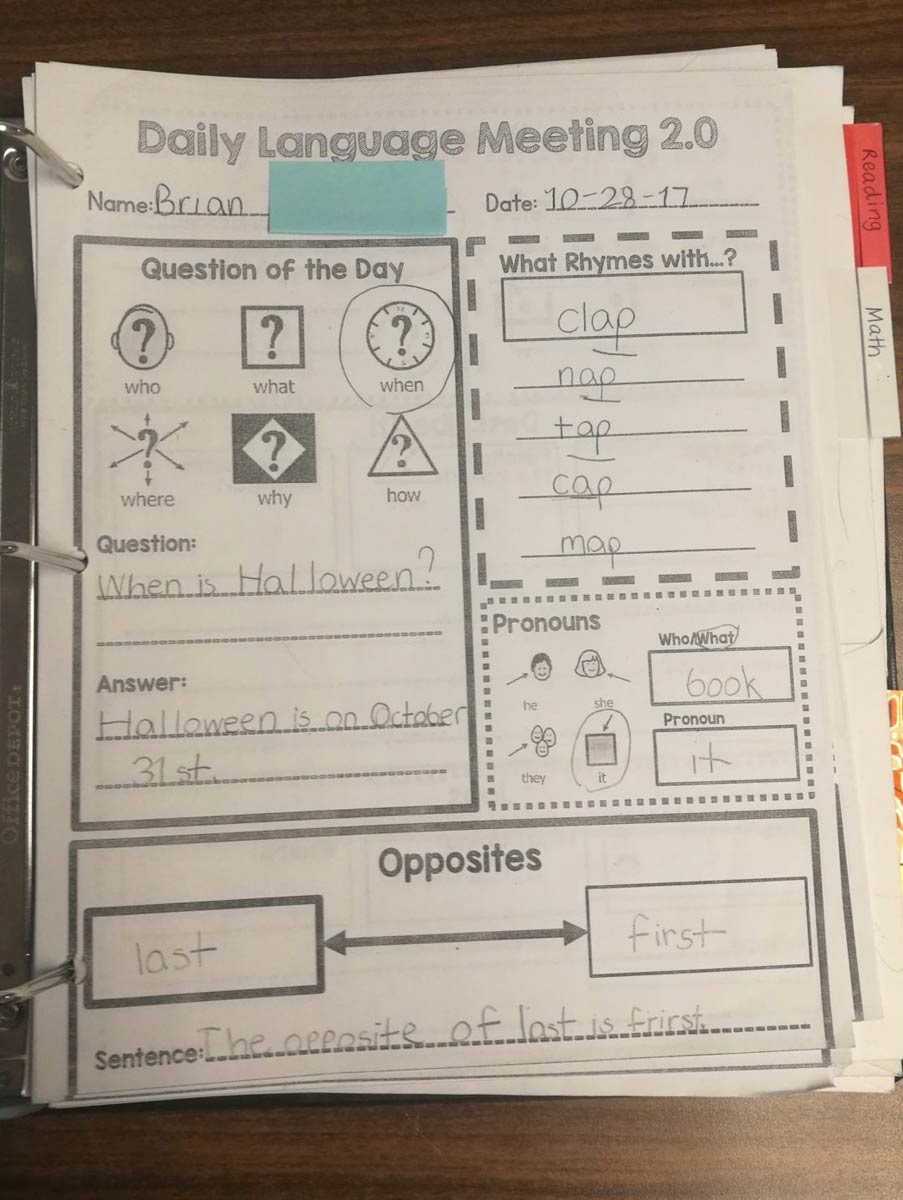 Daily Language Meeting 2.0
Name: Brian
Date: 10-28-17
Question of the Day
who
what
when
where
why
how
Question:
When is Halloween?
Answer:
Halloween is on October
31st.
What Rhymes with...?
clap
nap
tap
cap
map
Pronouns
he
she
they
it
Who/What
book
Pronoun
it
Opposites
last
first
Sentence: The opposite of last is frirst.
Reading
Math
Office DEPOT